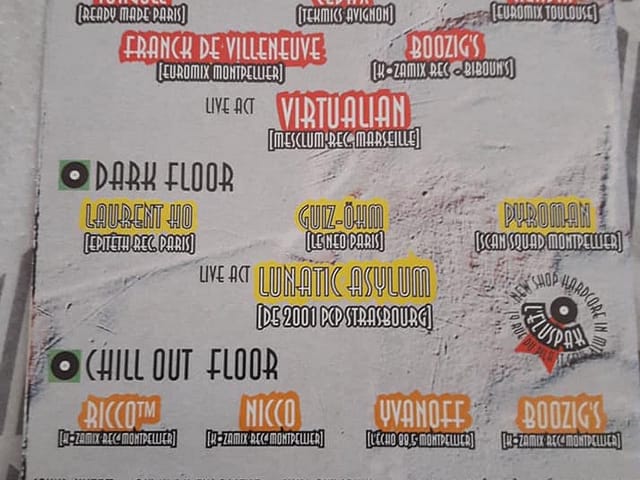 [READY MADE PARIS]
[TEKMICS AVIGNON]
[EUROMIX TOULOUSE]
FRANCK DE VILLENEUVE
[EUROMIX MONTPELLIER]
BOOZIG'S
[K-ZAMIX REC - BIBOUN'S]
LIVE ACT VIRTUALIAN
[MESCLUM REC. MARSEILLE]
DARK FLOOR
LAURENT HO
[EPITÉTH REC. PARIS]
GUIZ-ÖHM
[LE NEO PARIS]
PYROMAN
[SCAN SQUAD MONTPELLIER]
LIVE ACT LUNATIC ASYLUM
[DE 2001 PCP STRASBOURG]
NEW SHOP HARDCORE IN
L'ELUSPAK
CHILL OUT FLOOR
RICCO™
[K-ZAMIX REC. MONTPELLIER]
NICCO
[K-ZAMIX REC. MONTPELLIER]
YVANOFF
[L'ÉCHO 88,5 MONTPELLIER]
BOOZIG'S
[K-ZAMIX REC. MONTPELLIER]